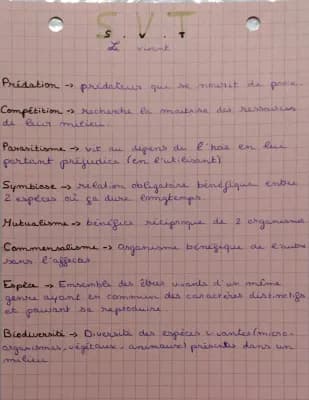 S.V.T
Le vivant
Prédation -> prédateur qui se nourit de proie.
Compétition -> recherche la maitrise des ressources
de leur milieu.
Parasitisme -> vit au dépens de l'hôte en lui
portant préjudice (en l'utilisant)
Symbiose -> relation obligatoire bénéfique entre
2 espèces où ça dure longtemps.
Mutualisme -> bénéfice réciproque de 2 organismes
Commensalisme -> Organisme bénéfique de l'autre
sans l'affecter
Espèce -> Ensemble des êtres vivants d'un même
genre ayant en commun des caractères distinctifs
et pouvant se reproduire
Biodiversité -> Diversité des espèces vivantes (micro-
organismes, végétaux, animaux) présentes dans un
milieu